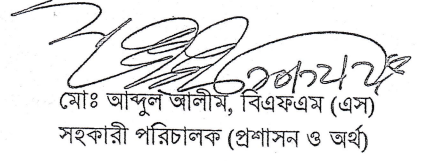 মোঃ আব্দুল আলীম, বিএফএম (এস)
সহকারী পরিচালক (প্রশাসন ও অর্থ)